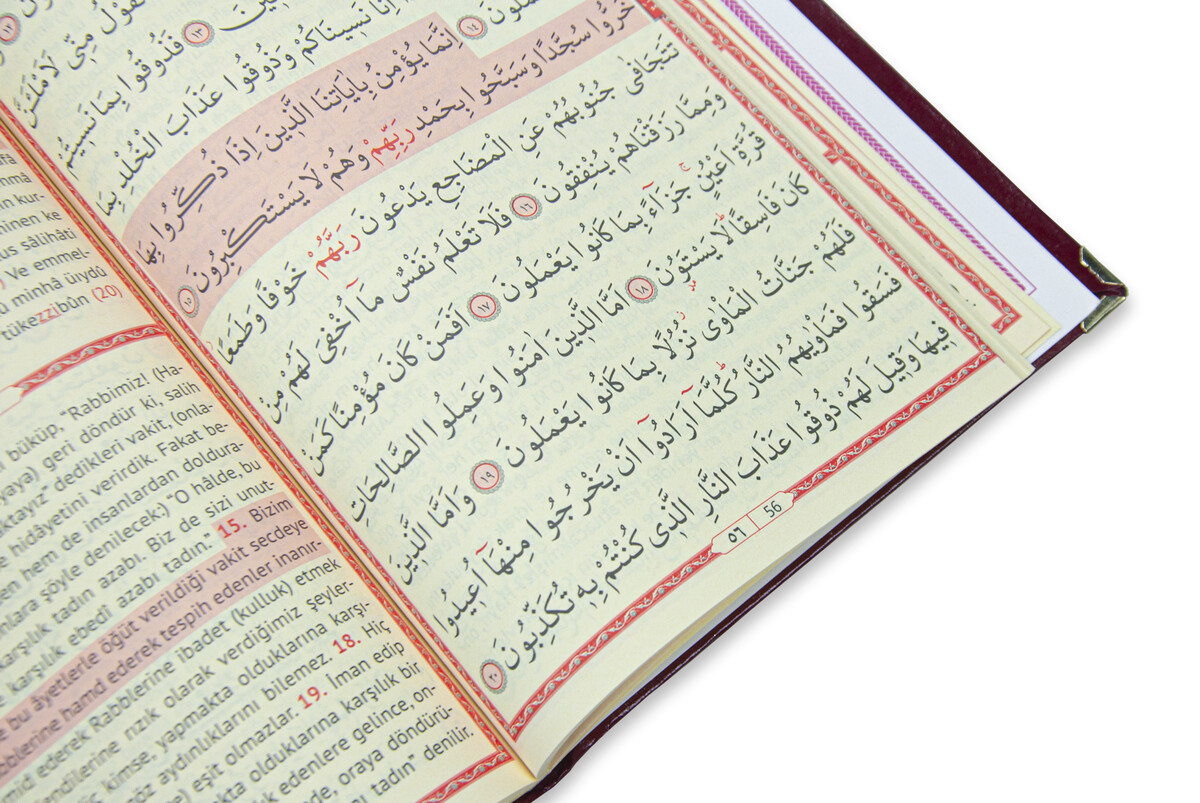 ـقول منى لاملئن
١٣ فذوقوا بما نسيتم
ـملون ١٤
انا نسيناكم وذوقوا عذاب الخلد بما
اِنَّمَا يُؤْمِنُ بِاٰيَاتِنَا الَّذ۪ينَ اِذَا ذُكِّرُوا بِهَا
خَرُّوا سُجَّدًا وَسَبَّحُوا بِحَمْدِ رَبِّهِمْ وَهُمْ لَا يَسْتَكْبِرُونَ ١٥
تَتَجَافٰى جُنُوبُهُمْ عَنِ الْمَضَاجِعِ يَدْعُونَ رَبَّهُمْ خَوْفًا وَطَمَعًا
وَمِمَّا رَزَقْنَاهُمْ يُنْفِقُونَ ١٦ فَلَا تَعْلَمُ نَفْسٌ مَٓا اُخْفِيَ لَهُمْ مِنْ
قُرَّةِ اَعْيُنٍۚ جَزَٓاءً بِمَا كَانُوا يَعْمَلُونَ ١٧ اَفَمَنْ كَانَ مُؤْمِنًا كَمَنْ
كَانَ فَاسِقًاۜ لَا يَسْتَوُ۫نَ ١٨ اَمَّا الَّذ۪ينَ اٰمَنُوا وَعَمِلُوا الصَّالِحَاتِ
فَلَهُمْ جَنَّاتُ الْمَأْوٰىۘ نُزُلًا بِمَا كَانُوا يَعْمَلُونَ ١٩ وَاَمَّا الَّذ۪ينَ
فَسَقُوا فَمَأْوٰيهُمُ النَّارُ كُلَّمَٓا اَرَادُٓوا اَنْ يَخْرُجُوا مِنْهَٓا اُع۪يدُوا
ف۪يهَا وَق۪يلَ لَهُمْ ذُوقُوا عَذَابَ النَّارِ الَّذ۪ي كُنْتُمْ بِه۪ تُكَذِّبُونَ ٢٠
٥٦ 56
hinen ke
us sâlihâti
Ve emmel
minhâ üıydû
tükezzibûn (20)
büküp, "Rabbimiz! (Ha-
geri döndür ki, salih
dedikleri vakit, (onla-
hidâyetini verirdik. Fakat be-
hem de insanlardan doldura-
şöyle denilecek:) "O hâlde, bu
karşılık tadın azabı. Biz de sizi unut-
karşılık ebedî azabı tadın." 15. Bizim
bu âyetlerle öğüt verildiği vakit secdeye
hamd ederek tespih edenler inanır-
ederek Rabblerine ibadet (kulluk) etmek
rızık olarak verdiğimiz şeyler-
kimse, yapmakta olduklarına karşı-
aydınlıklarını bilemez. 18. Hiç
eşit olmazlar. 19. İman edip
olduklarına karşılık bir
edenlere gelince, on-
oraya döndürü-
tadın" denilir.